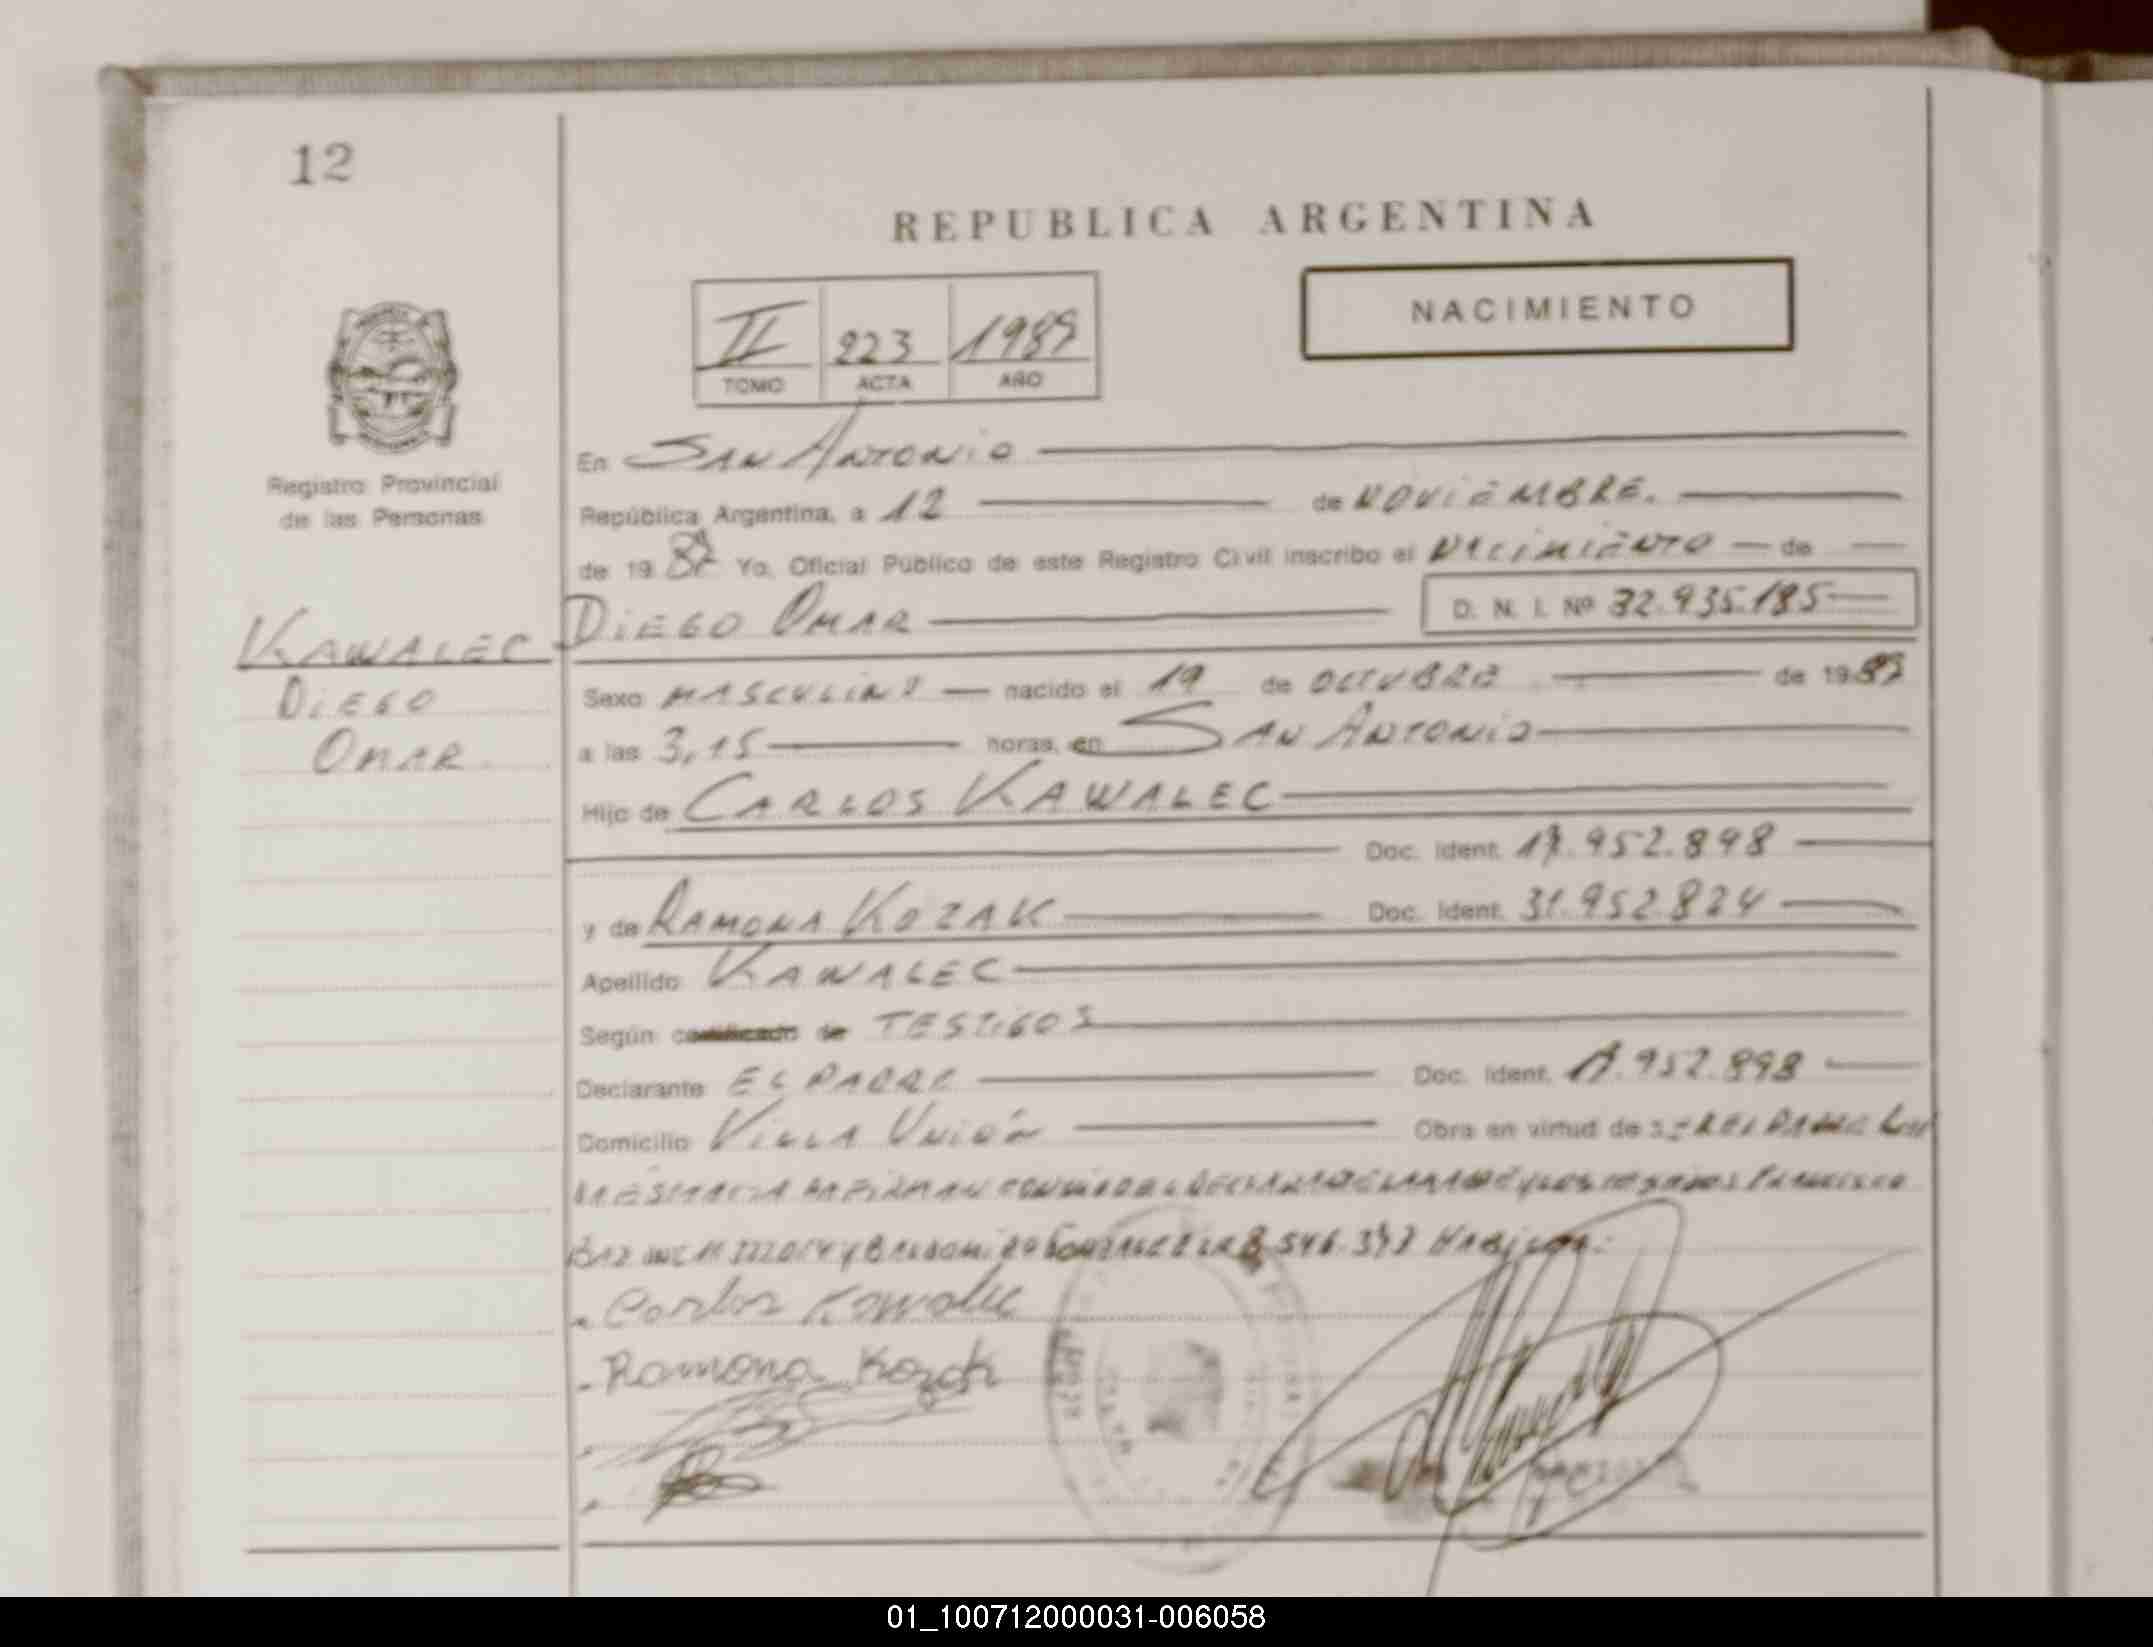 12
REPUBLICA ARGENTINA
NACIMIENTO
II 223 1989
TOMO ACTA AÑO
Registro Provincial
de las Personas
En San Antonio
República Argentina, a 12 de Noviembre.
de 19 Yo, Oficial Público de este Registro Civil inscribo el Nacimiento de
Kawalec Diego Omar D. N. I. Nº 32.935.185
Diego
Omar
Sexo Masculino nacido el 19 de Octubre de 19
a las 3,15 horas, en San Antonio
Hijo de Carlos Kawalec
Doc. Ident. 17.952.898
y de Ramona Kozak Doc. Ident. 31.952.824
Apellido Kawalec
Según certificado de Testigos
Declarante El Padre Doc. Ident. .952.898
Domicilio Villa Unión Obra en virtud de
Carlos Kawalec
Ramona Kozak
01_100712000031-006058